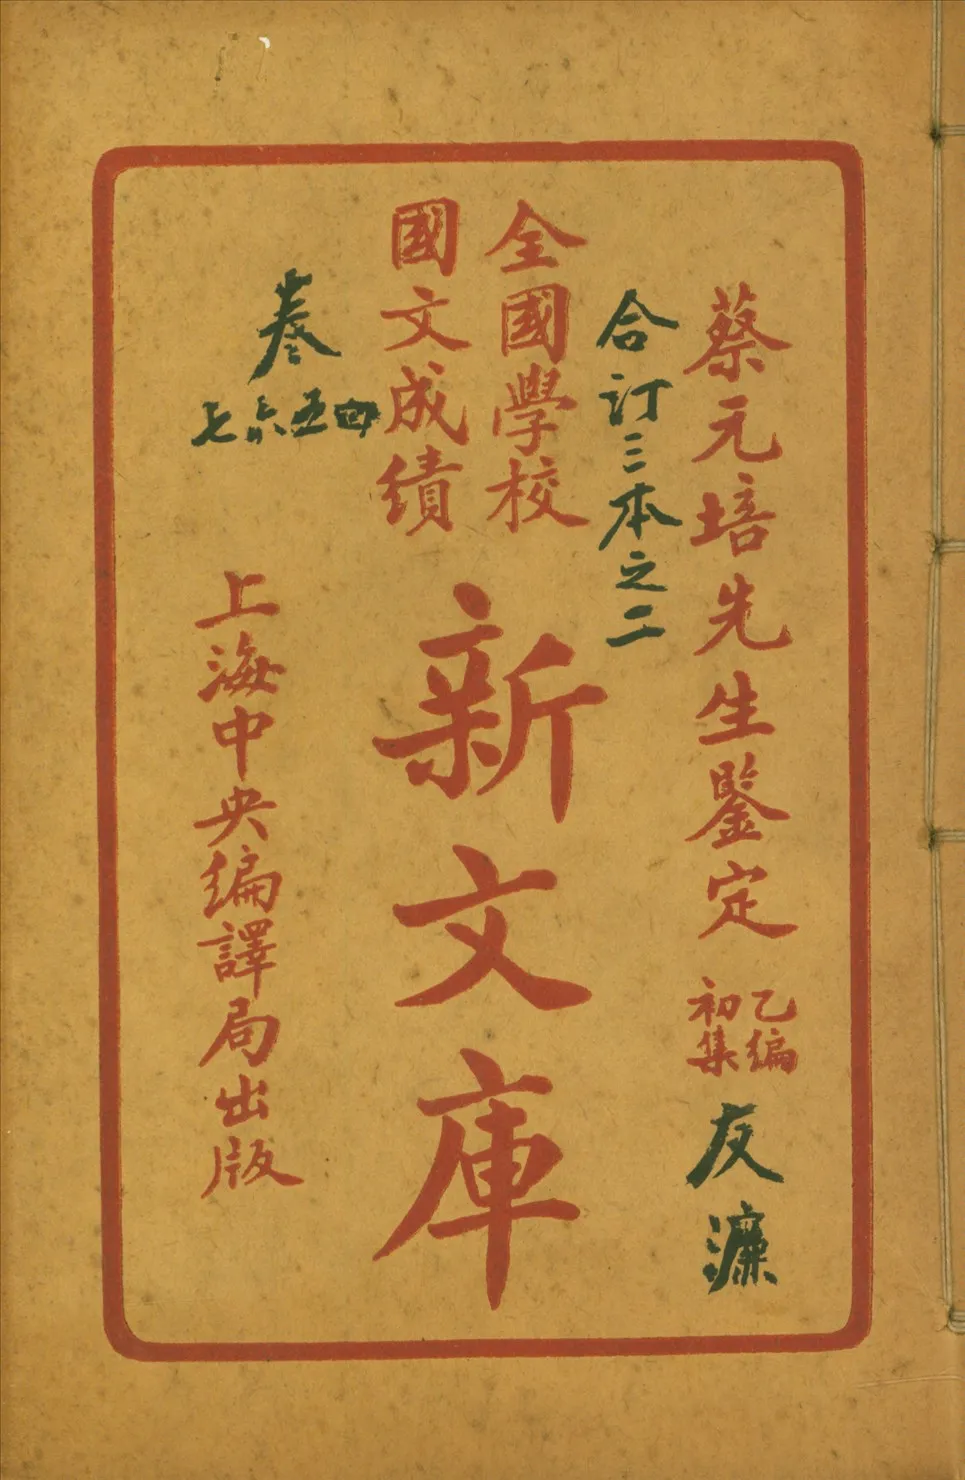 蔡元培先生鑒定
乙編
初集
友濂
合訂三本之二
全國學校
國文成績
新文庫
卷
四五六七
上海中央編譯局出版